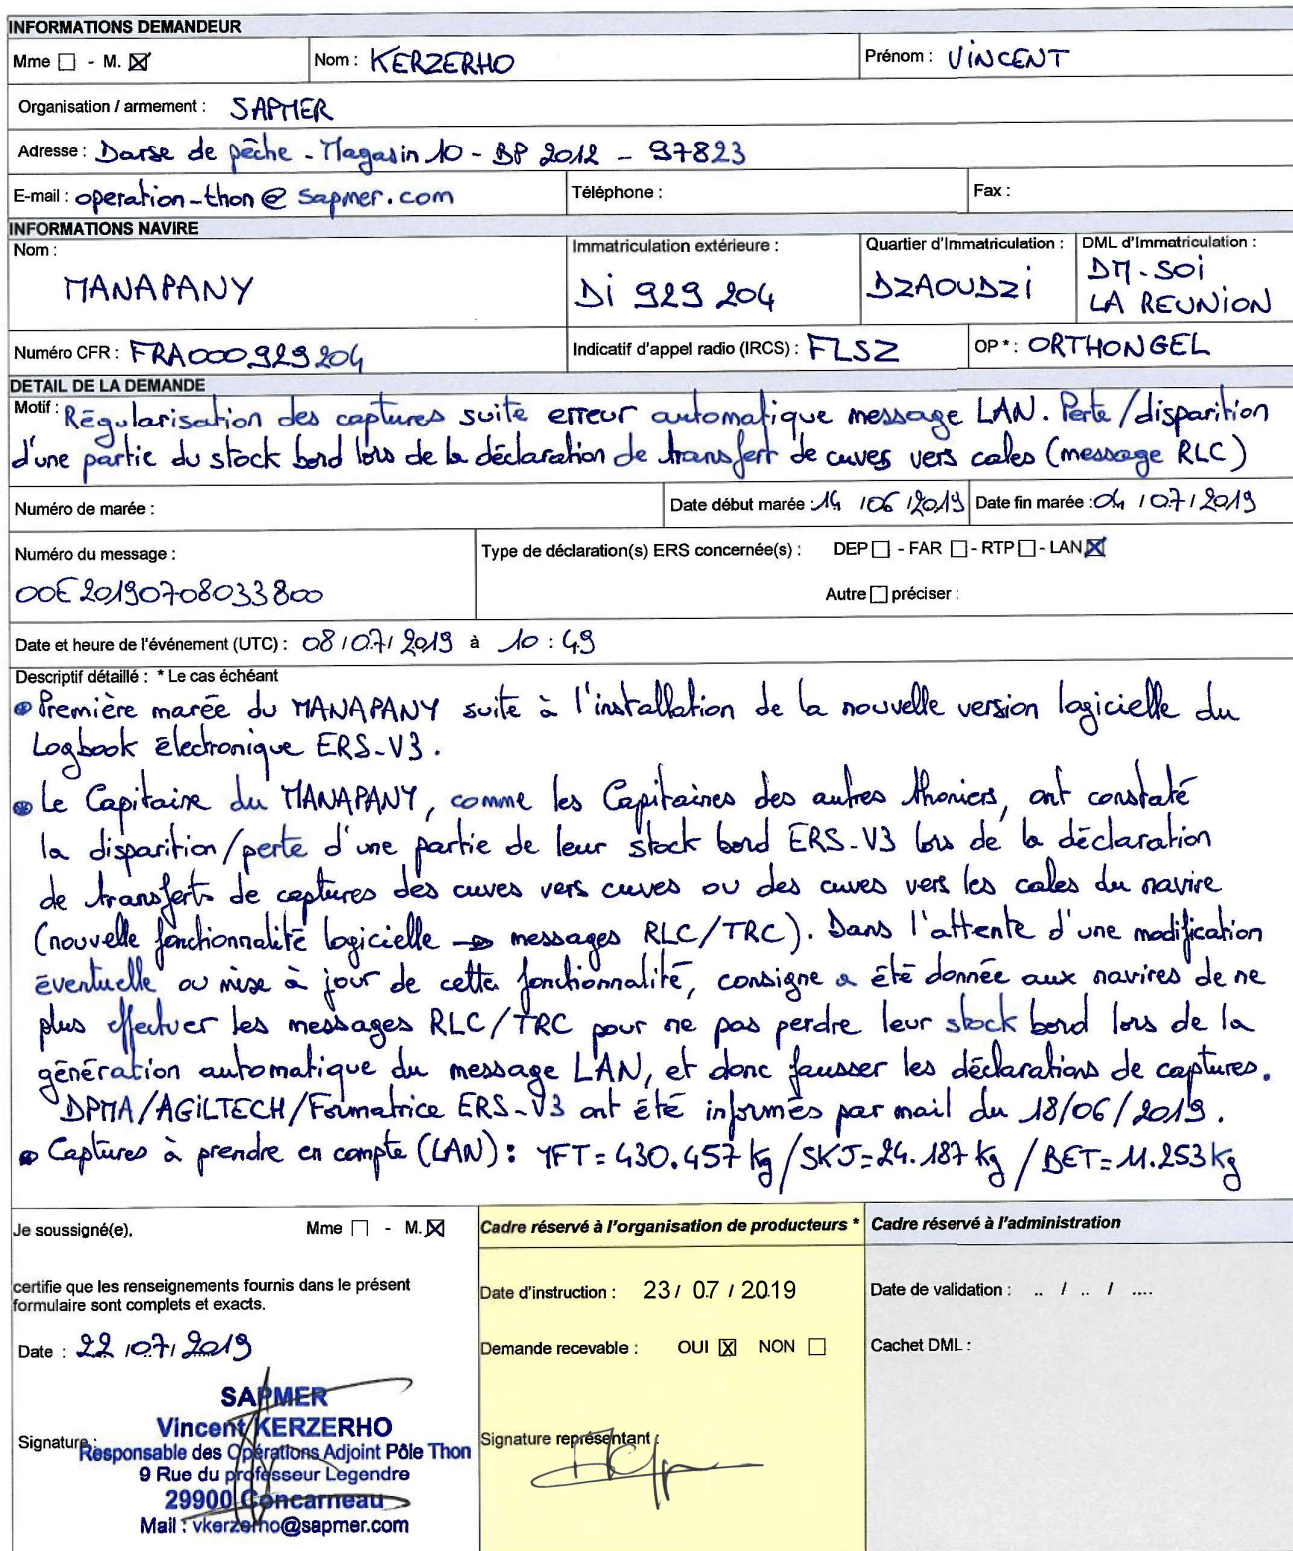 INFORMATIONS DEMANDEUR
Mme ☐ - M. ☒ Nom : KERZERHO Prénom : VINCENT
Organisation / armement : SAPMER
Adresse : Darse de pêche - Magasin 10 - BP 2012 - 97823
E-mail : operation-thon@sapmer.com Téléphone : Fax :
INFORMATIONS NAVIRE
Nom : MANAPANY
Immatriculation extérieure : Di 929 204
Quartier d'Immatriculation : DZAOUDZi
DML d'Immatriculation : DM-SOi
LA REUNION
Numéro CFR : FRA000929204 Indicatif d'appel radio (IRCS) : FLSZ OP * : ORTHONGEL
DETAIL DE LA DEMANDE
Motif : Régularisation des captures suite erreur automatique message LAN. Perte/disparition
d'une partie du stock bord lors de la déclaration de transfert de cuves vers cales (message RLC)
Numéro de marée : Date début marée : 14 / 06 / 2019 Date fin marée : 04 / 07 / 2019
Numéro du message :
OOE20190708033800
Type de déclaration(s) ERS concernée(s) : DEP ☐ - FAR ☐ - RTP ☐ - LAN ☒
Autre ☐ préciser :
Date et heure de l'événement (UTC) : 08 / 07 / 2019 à 10 : 49
Descriptif détaillé : * Le cas échéant
• Première marée du MANAPANY suite à l'installation de la nouvelle version logicielle du
Logbook électronique ERS-V3.
• Le Capitaine du MANAPANY, comme les Capitaines des autres thoniers, ont constaté
la disparition/perte d'une partie de leur stock bord ERS-V3 lors de la déclaration
de transferts de captures des cuves vers cuves ou des cuves vers les cales du navire
(nouvelle fonctionnalité logicielle → messages RLC/TRC). Dans l'attente d'une modification
éventuelle ou mise à jour de cette fonctionnalité, consigne a été donnée aux navires de ne
plus effectuer les messages RLC/TRC pour ne pas perdre leur stock bord lors de la
génération automatique du message LAN, et donc fausser les déclarations de captures.
DPMA/AGILTECH/Formatrice ERS-V3 ont été informés par mail du 18/06/2019.
• Captures à prendre en compte (LAN) : YFT = 430.457 kg / SKJ = 24.187 kg / BET = 11.253 kg
Je soussigné(e), Mme ☐ - M. ☒
certifie que les renseignements fournis dans le présent
formulaire sont complets et exacts.
Date : 22 / 07 / 2019
Signature :
SAPMER
Vincent KERZERHO
Responsable des Opérations Adjoint Pôle Thon
9 Rue du professeur Legendre
29900 Concarneau
Mail : vkerzerho@sapmer.com
Cadre réservé à l'organisation de producteurs *
Date d'instruction : 23 / 07 / 2019
Demande recevable : OUI ☒ NON ☐
Signature représentant :
Cadre réservé à l'administration
Date de validation : .. / .. / ....
Cachet DML :